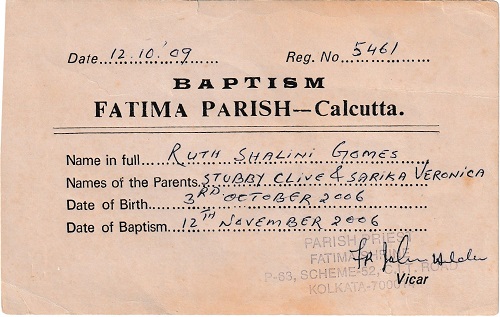 Date 12.10.'09 Reg. No 5461
BAPTISM
FATIMA PARISH—Calcutta.
Name in full RUTH SHALINI GOMES
Names of the Parents STUBBY CLIVE & SARIKA VERONICA
Date of Birth 3RD OCTOBER 2006
Date of Baptism 12TH NOVEMBER 2006
PARISH PRIEST
FATIMA
P-83, SCHEME-52, ROAD
KOLKATA-700
Fr John
Vicar